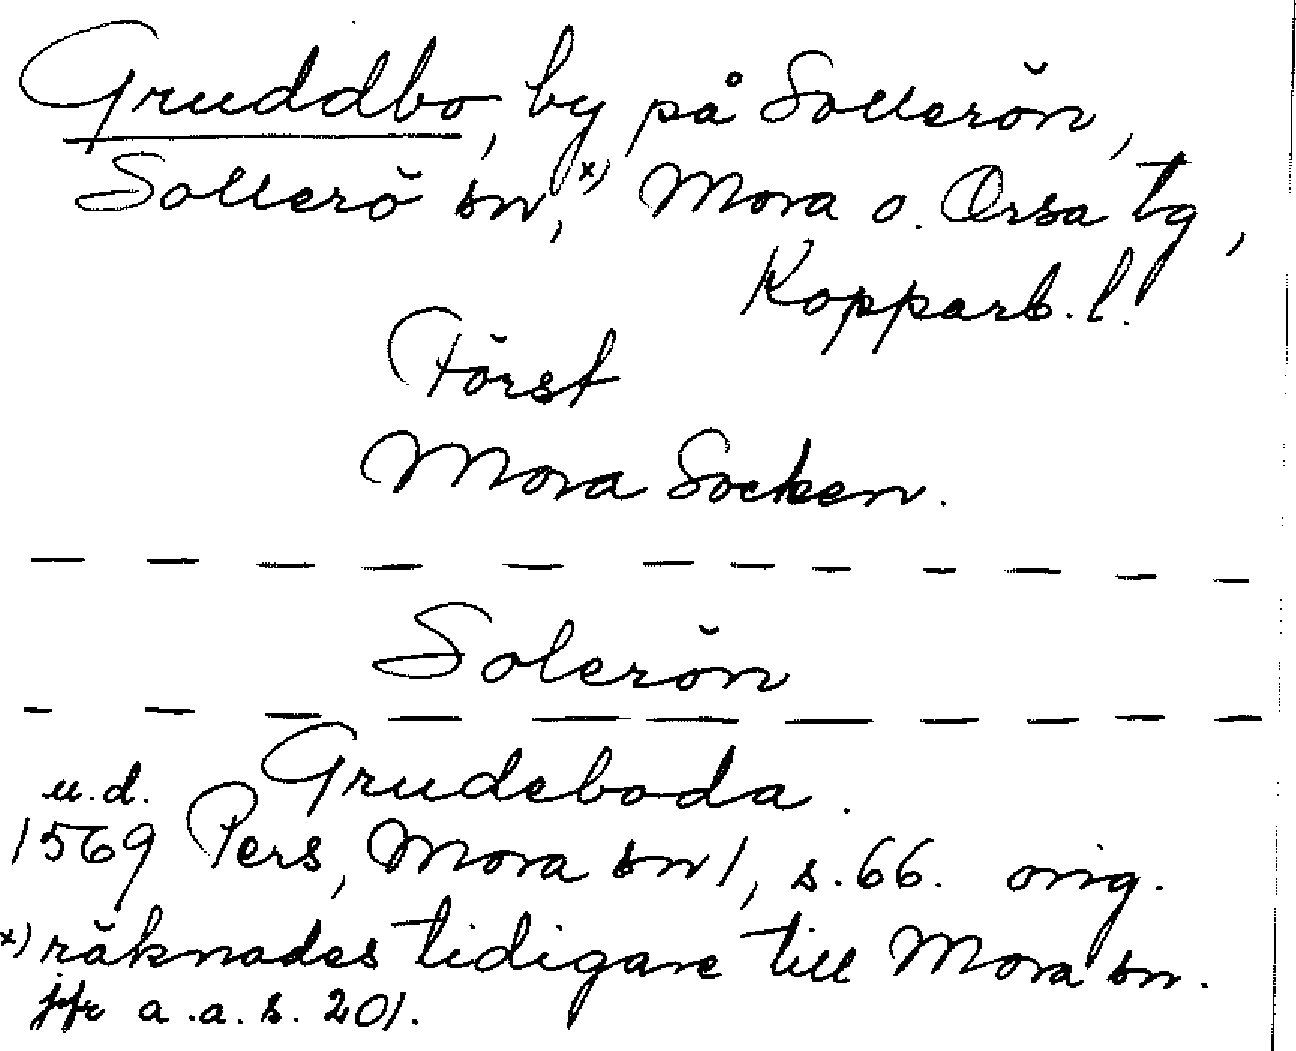 Gruddbo, by på Sollerön,
Sollerö sn,x) Mora o. Orsa tg,
Kopparb. l.
Först
Mora Socken.
— — — — — — — — — — — —
Solerön
— — — — — — — — — — —
Grudeboda.
u.d.
1569 Pers, Mora sn 1, s. 66. orig.
x) räknades tidigare till Mora sn.
jfr a.a. s. 201.